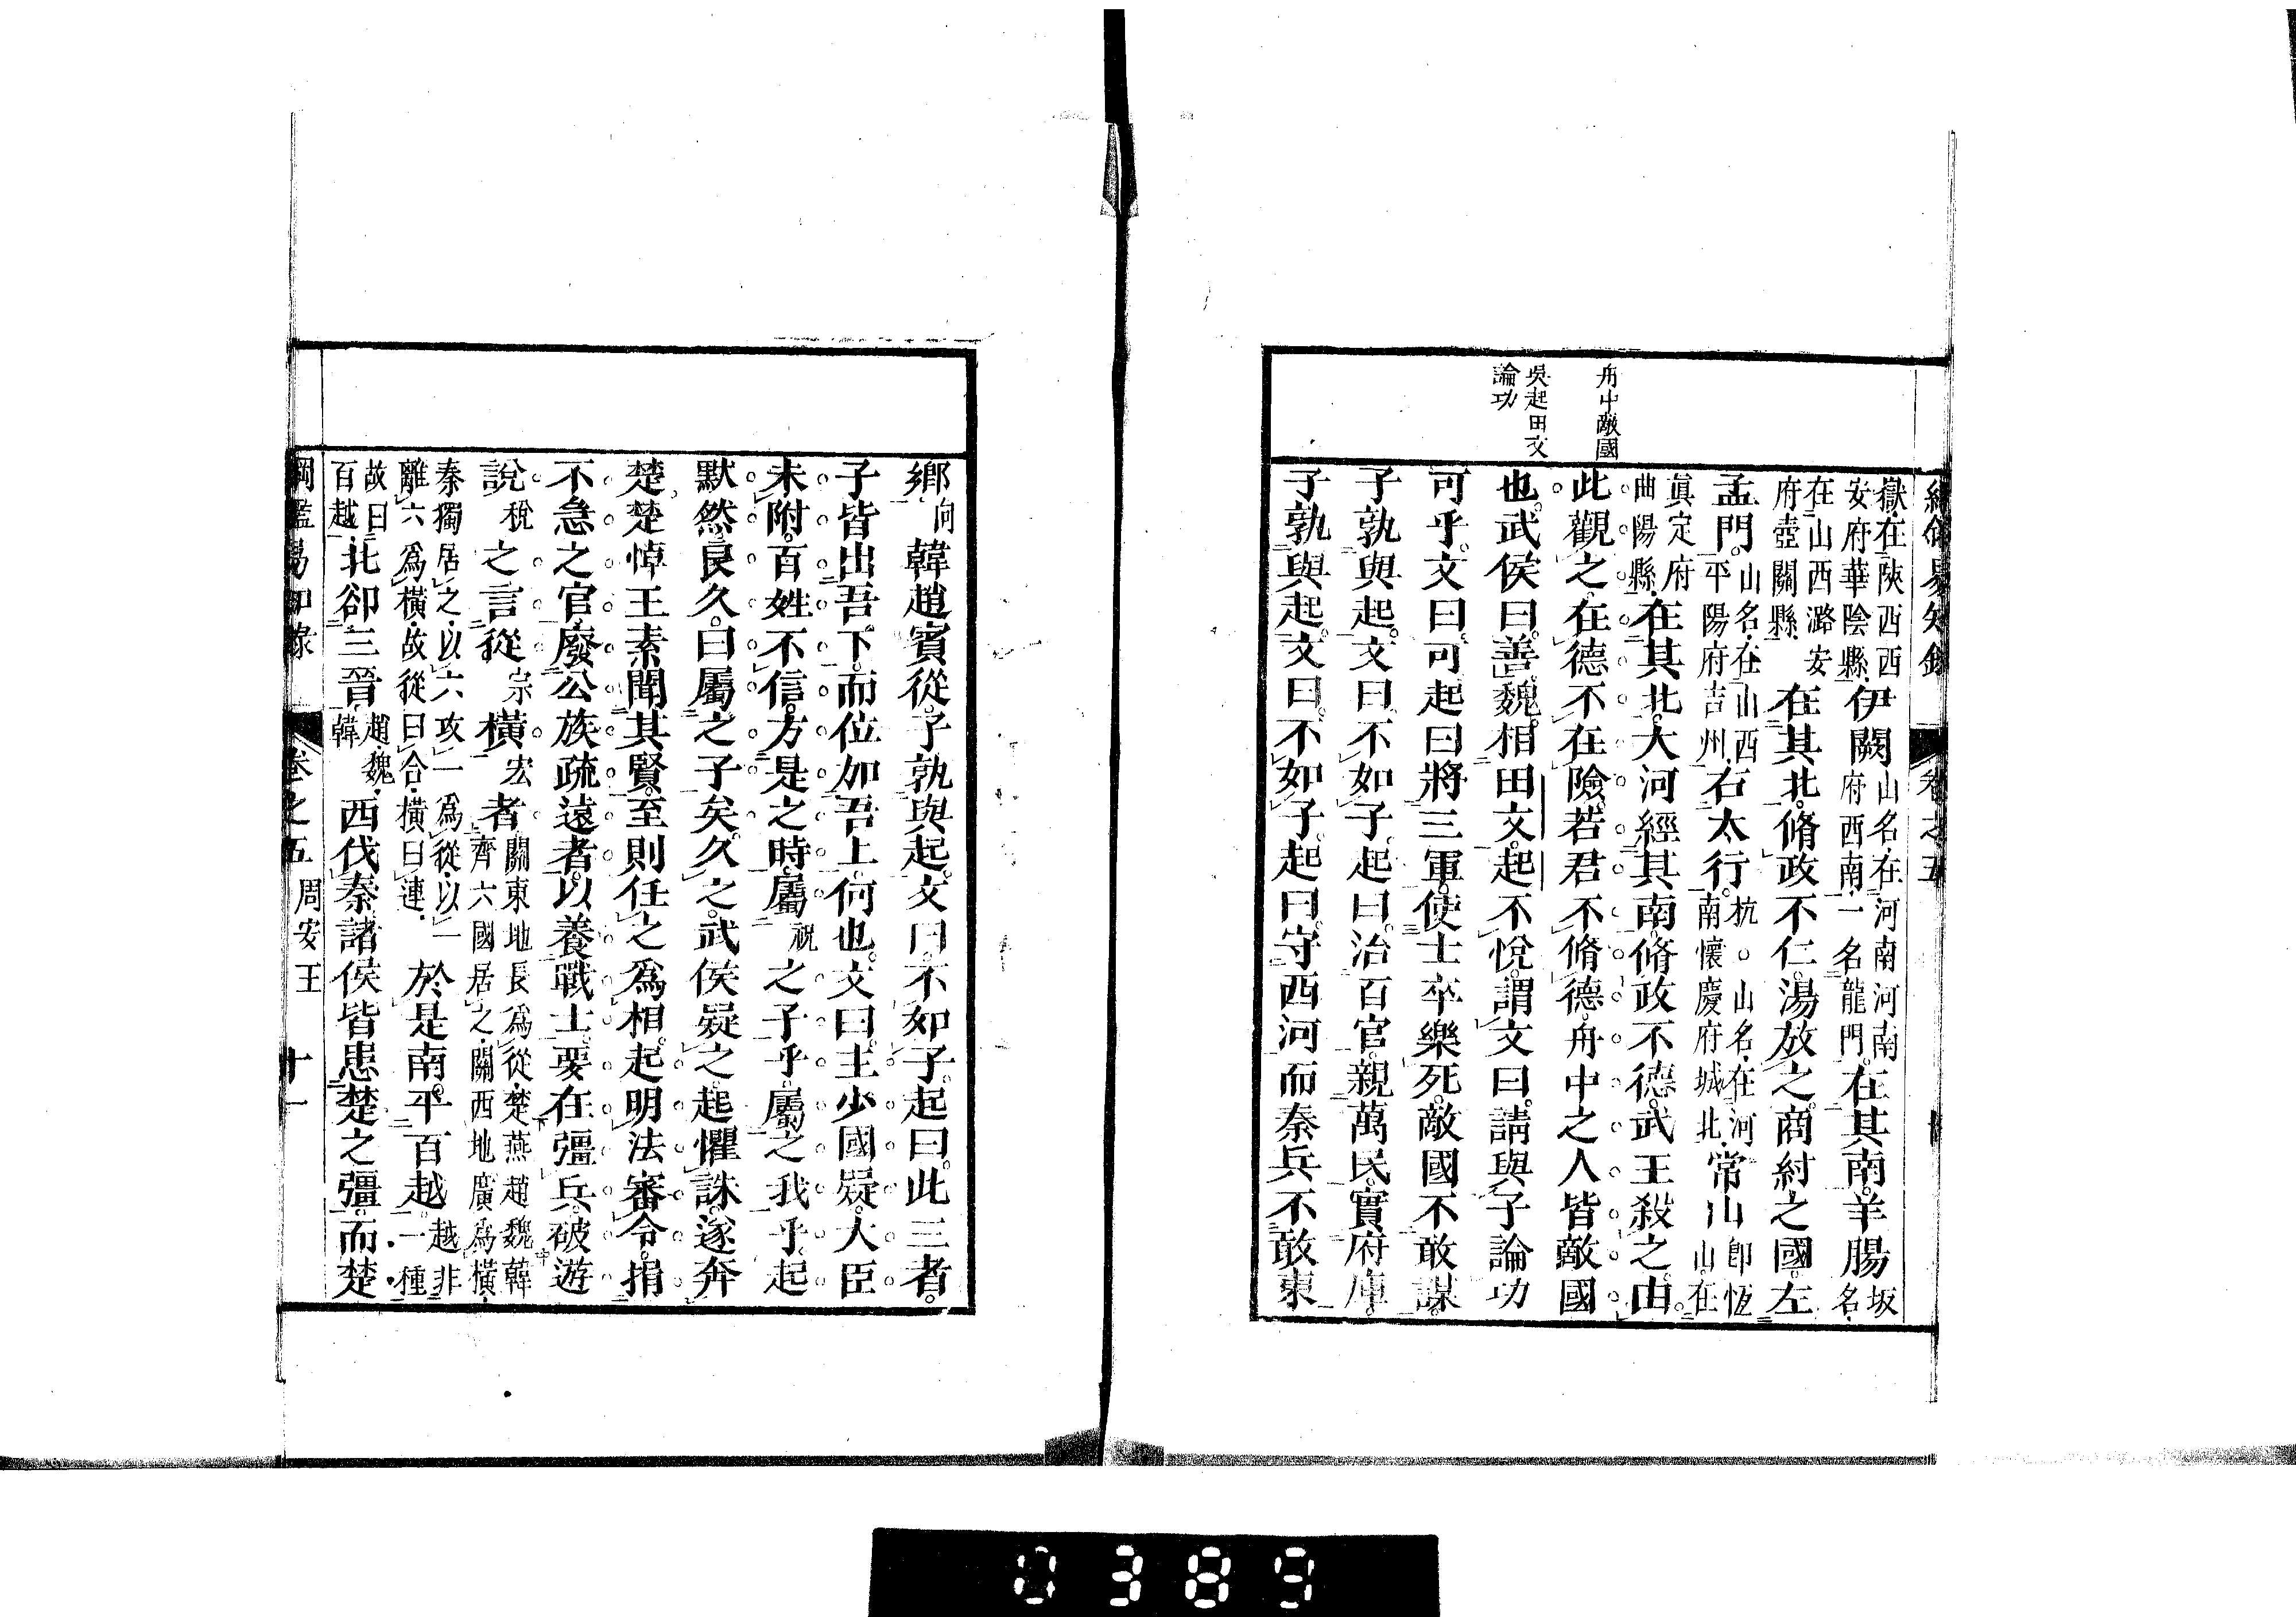 綱鑑易知錄 卷之五
舟中敵國
吳起田文
論功
嶽在陝西西
安府華陰縣伊闕山名在河南河南
府西南一名龍門在其南羊腸坂
名
在山西潞安
府壺關縣在其北脩政不仁湯放之商紂之國左
孟門山名在山西
平陽府吉州右太行杭○山名在河
南懷慶府城北常山卽恆
山在
眞定府
曲陽縣在其北大河經其南脩政不德武王殺之由
此觀之在德不在險若君不脩德舟中之人皆敵國
也武侯曰善魏相田文起不悅謂文曰請與子論功
可乎文曰可起曰將三軍使士卒樂死敵國不敢謀
子孰與起文曰不如子起曰治百官親萬民實府庫
子孰與起文曰不如子起曰守西河而秦兵不敢東
鄉向韓趙賓從子孰與起文曰不如子起曰此三者
子皆出吾下而位加吾上何也文曰主少國疑大臣
未附百姓不信方是之時屬祝之子乎屬之我乎起
默然良久曰屬之子矣久之武侯疑之起懼誅遂奔
楚楚悼王素聞其賢至則任之爲相起明法審令捐
不急之官廢公族疏遠者以養戰士要在彊兵破遊
說稅之言從宗橫宏者關東地長爲從楚燕趙魏韓
齊六國居之關西地廣爲橫
秦獨居之以六攻一爲從以一
離六爲橫故從曰合橫曰連於是南平百越越非
一種
故曰
百越北卻三晉趙魏
韓西伐秦諸侯皆患楚之彊而楚
綱鑑易知錄 卷之五 周安王 十一
0389